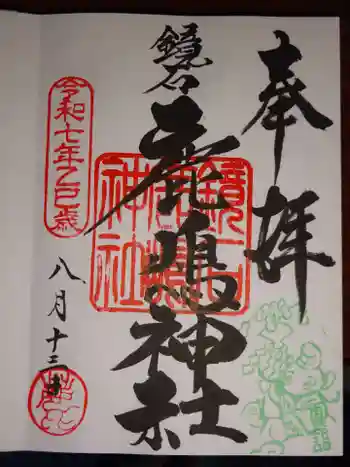 奉拝
鏡石
鹿嶋神社
鏡石鹿嶋神社
令和七年乙巳歳
八月十三日